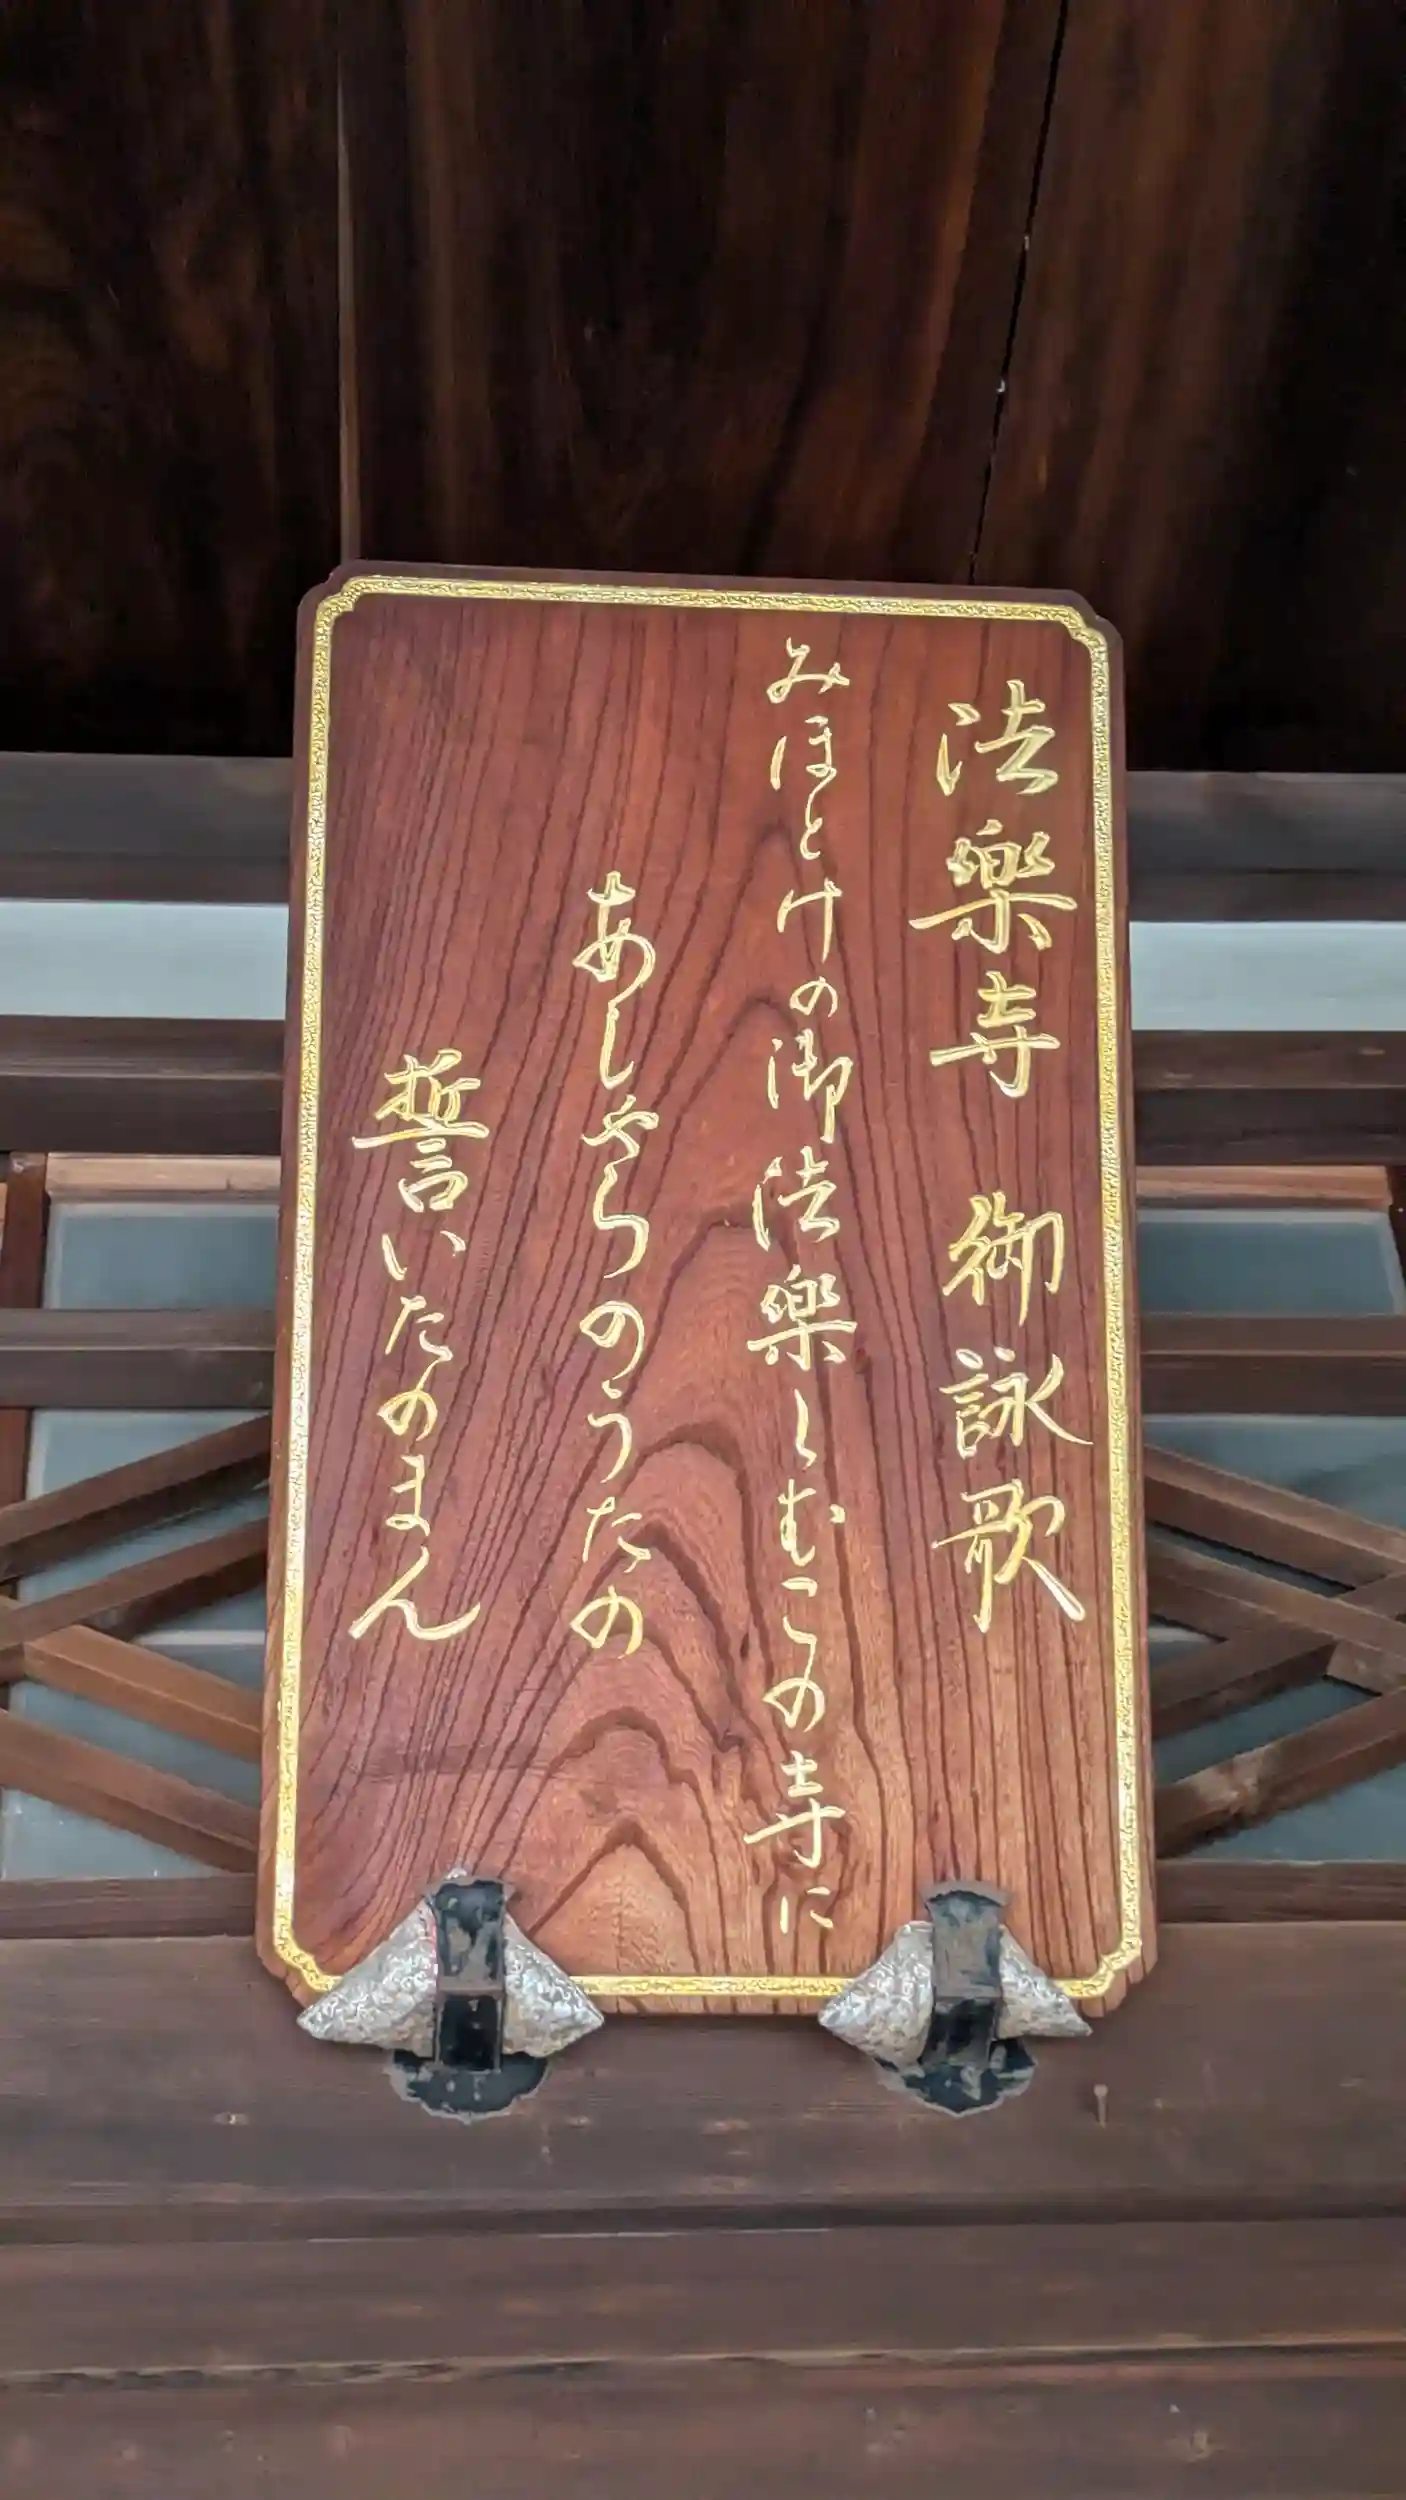 法樂寺 御詠歌
みほとけの御法楽しむこの寺に
あしやらのうたの
誓いたのまん